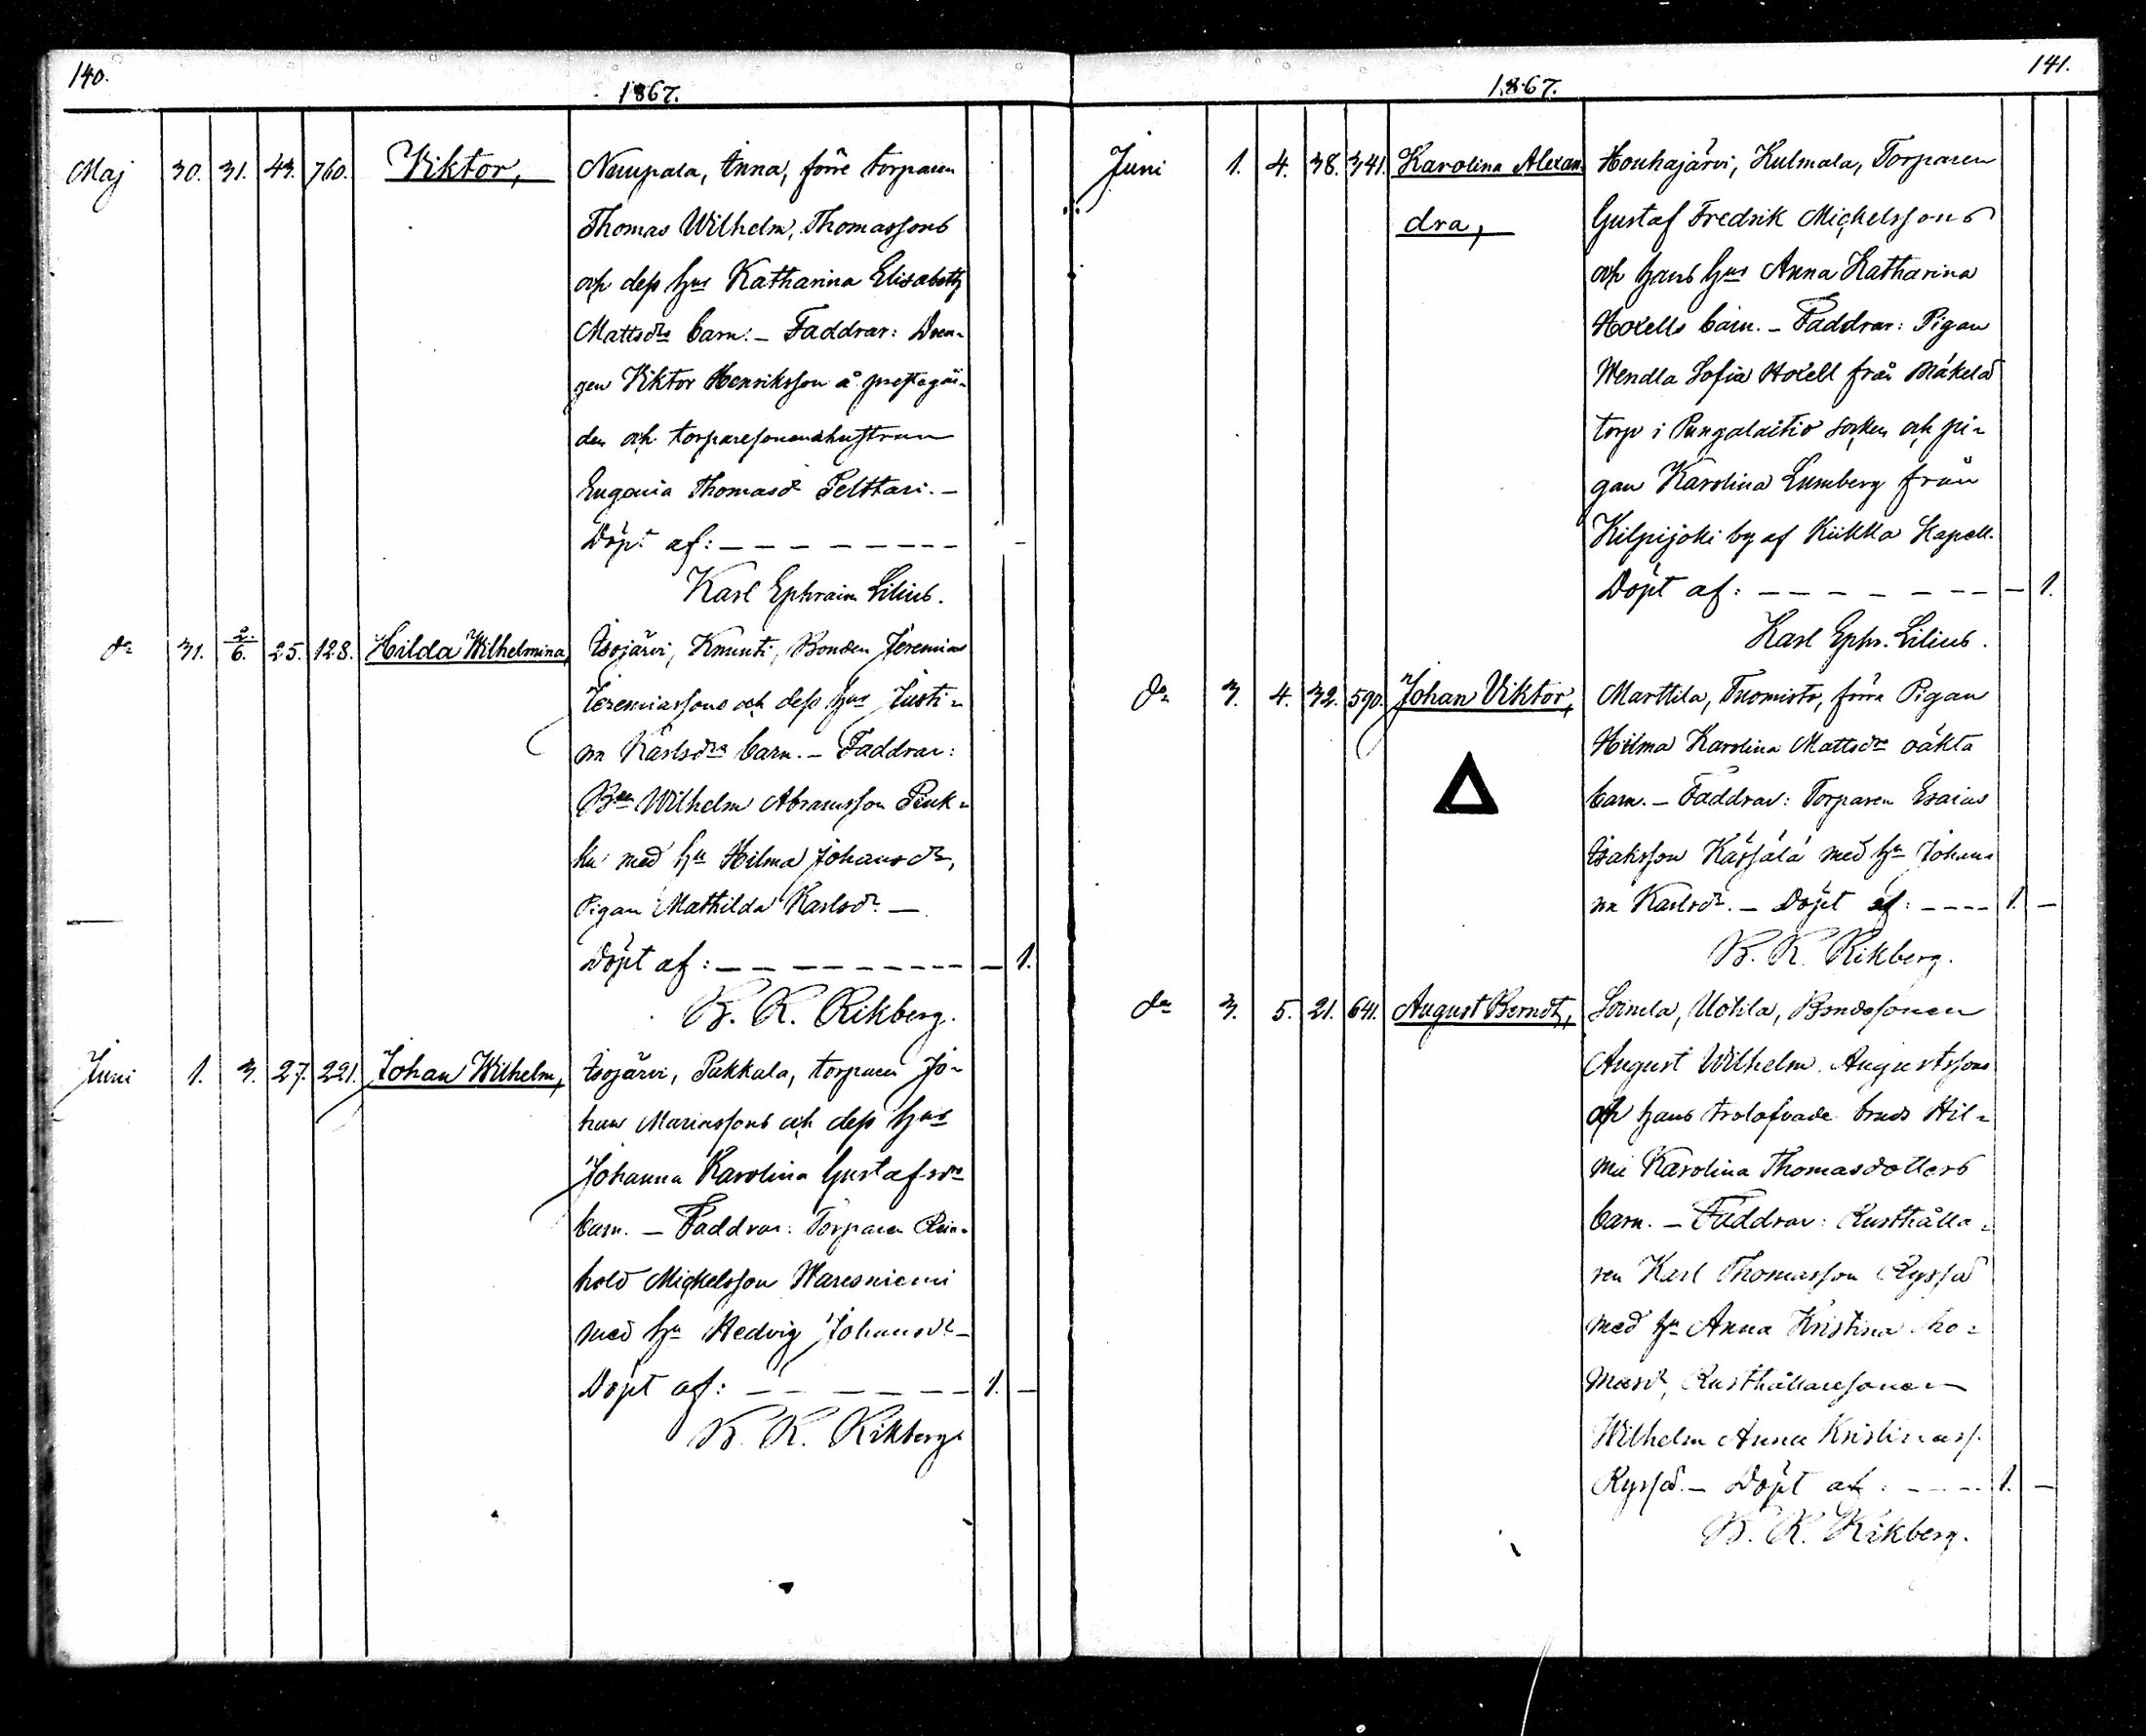 140.
1867.
Maj 30. 31. 43. 760. Viktor, Neupala, Anna, förre torparen
Thomas Wilhelm, Thomassons
och dess hus Katharina Elisabeth
Mattsdrs barn. – Faddrar: Dren-
gen Viktor Henriksson å prestegår-
den och torparesonenshustrun
Eugenia Thomasd. Pelttari. –
Döpt af: – – – – – – – – –
Karl Ephraim Lilius.
do 31. 2/6. 25. 128. Hilda Wilhelmina, Isojärvi, Knuuti, Bonden Jeremias
Jeremiassons och dess hus Justi-
na Karlsdrs barn. – Faddrar:
Bden Wilhelm Abramsson Penk-
ku med hu Hilma Johansdr,
Pigan Mathilda Karlsdr. –
Döpt af: – – – – – – – – – – 1.
B. R. Rikberg.
Juni 1. 3. 27. 221. Johan Wilhelm, Isojärvi, Pukkala, torparen Jo-
han Mariassons och dess hus
Johanna Karolina Gustafsdrs
barn. – Faddrar: Torparen Rein-
hold Mickelsson Waresniemi
med hu Hedvig Johansdr –
Döpt af: – – – – – – – 1. –
B. R. Rikberg.
141.
1867.
Juni 1. 4. 38. 341. Karolina Alexan- Honhajärvi, Kulmala, Torparen
dra, Gustaf Fredrik Mickelssons
och hans hus Anna Katharina
Hoxells barn. – Faddrar: Pigan
Wendla Sofia Hoxell från Mäkelä
torp i Pungalaitio socken och pi-
gan Karolina Lumberg från
Kilpijoki by af Kiikka Kapell.
Döpt af: – – – – – – – – 1.
Karl Ephr. Lilius.
do 3. 4. 32. 590. Johan Viktor, Marttila, Tuomisto, förra Pigan
Hilma Karolina Mattsdrs oäkta
barn. – Faddrar: Torparen Esaias
Isaksson Kässälä med hu Johan-
na Karlsdr. – Döpt af: – – – – 1. –
B. R. Rikberg.
do 3. 5. 21. 641. August Berndt, Loimela, Uotila, Bondesonen
August Wilhelm Augustssons
och hans trolofvade bruds Hil-
ma Karolina Thomasdotters
barn. – Faddrar: Rusthålla-
ren Karl Thomasson Ryssä
med hu Anna Kristina Tho-
masdr, Rusthållaresonen
Wilhelm Anna Kristinass.
Ryssä. – Döpt af: – – – – 1. –
B. R. Rikberg.